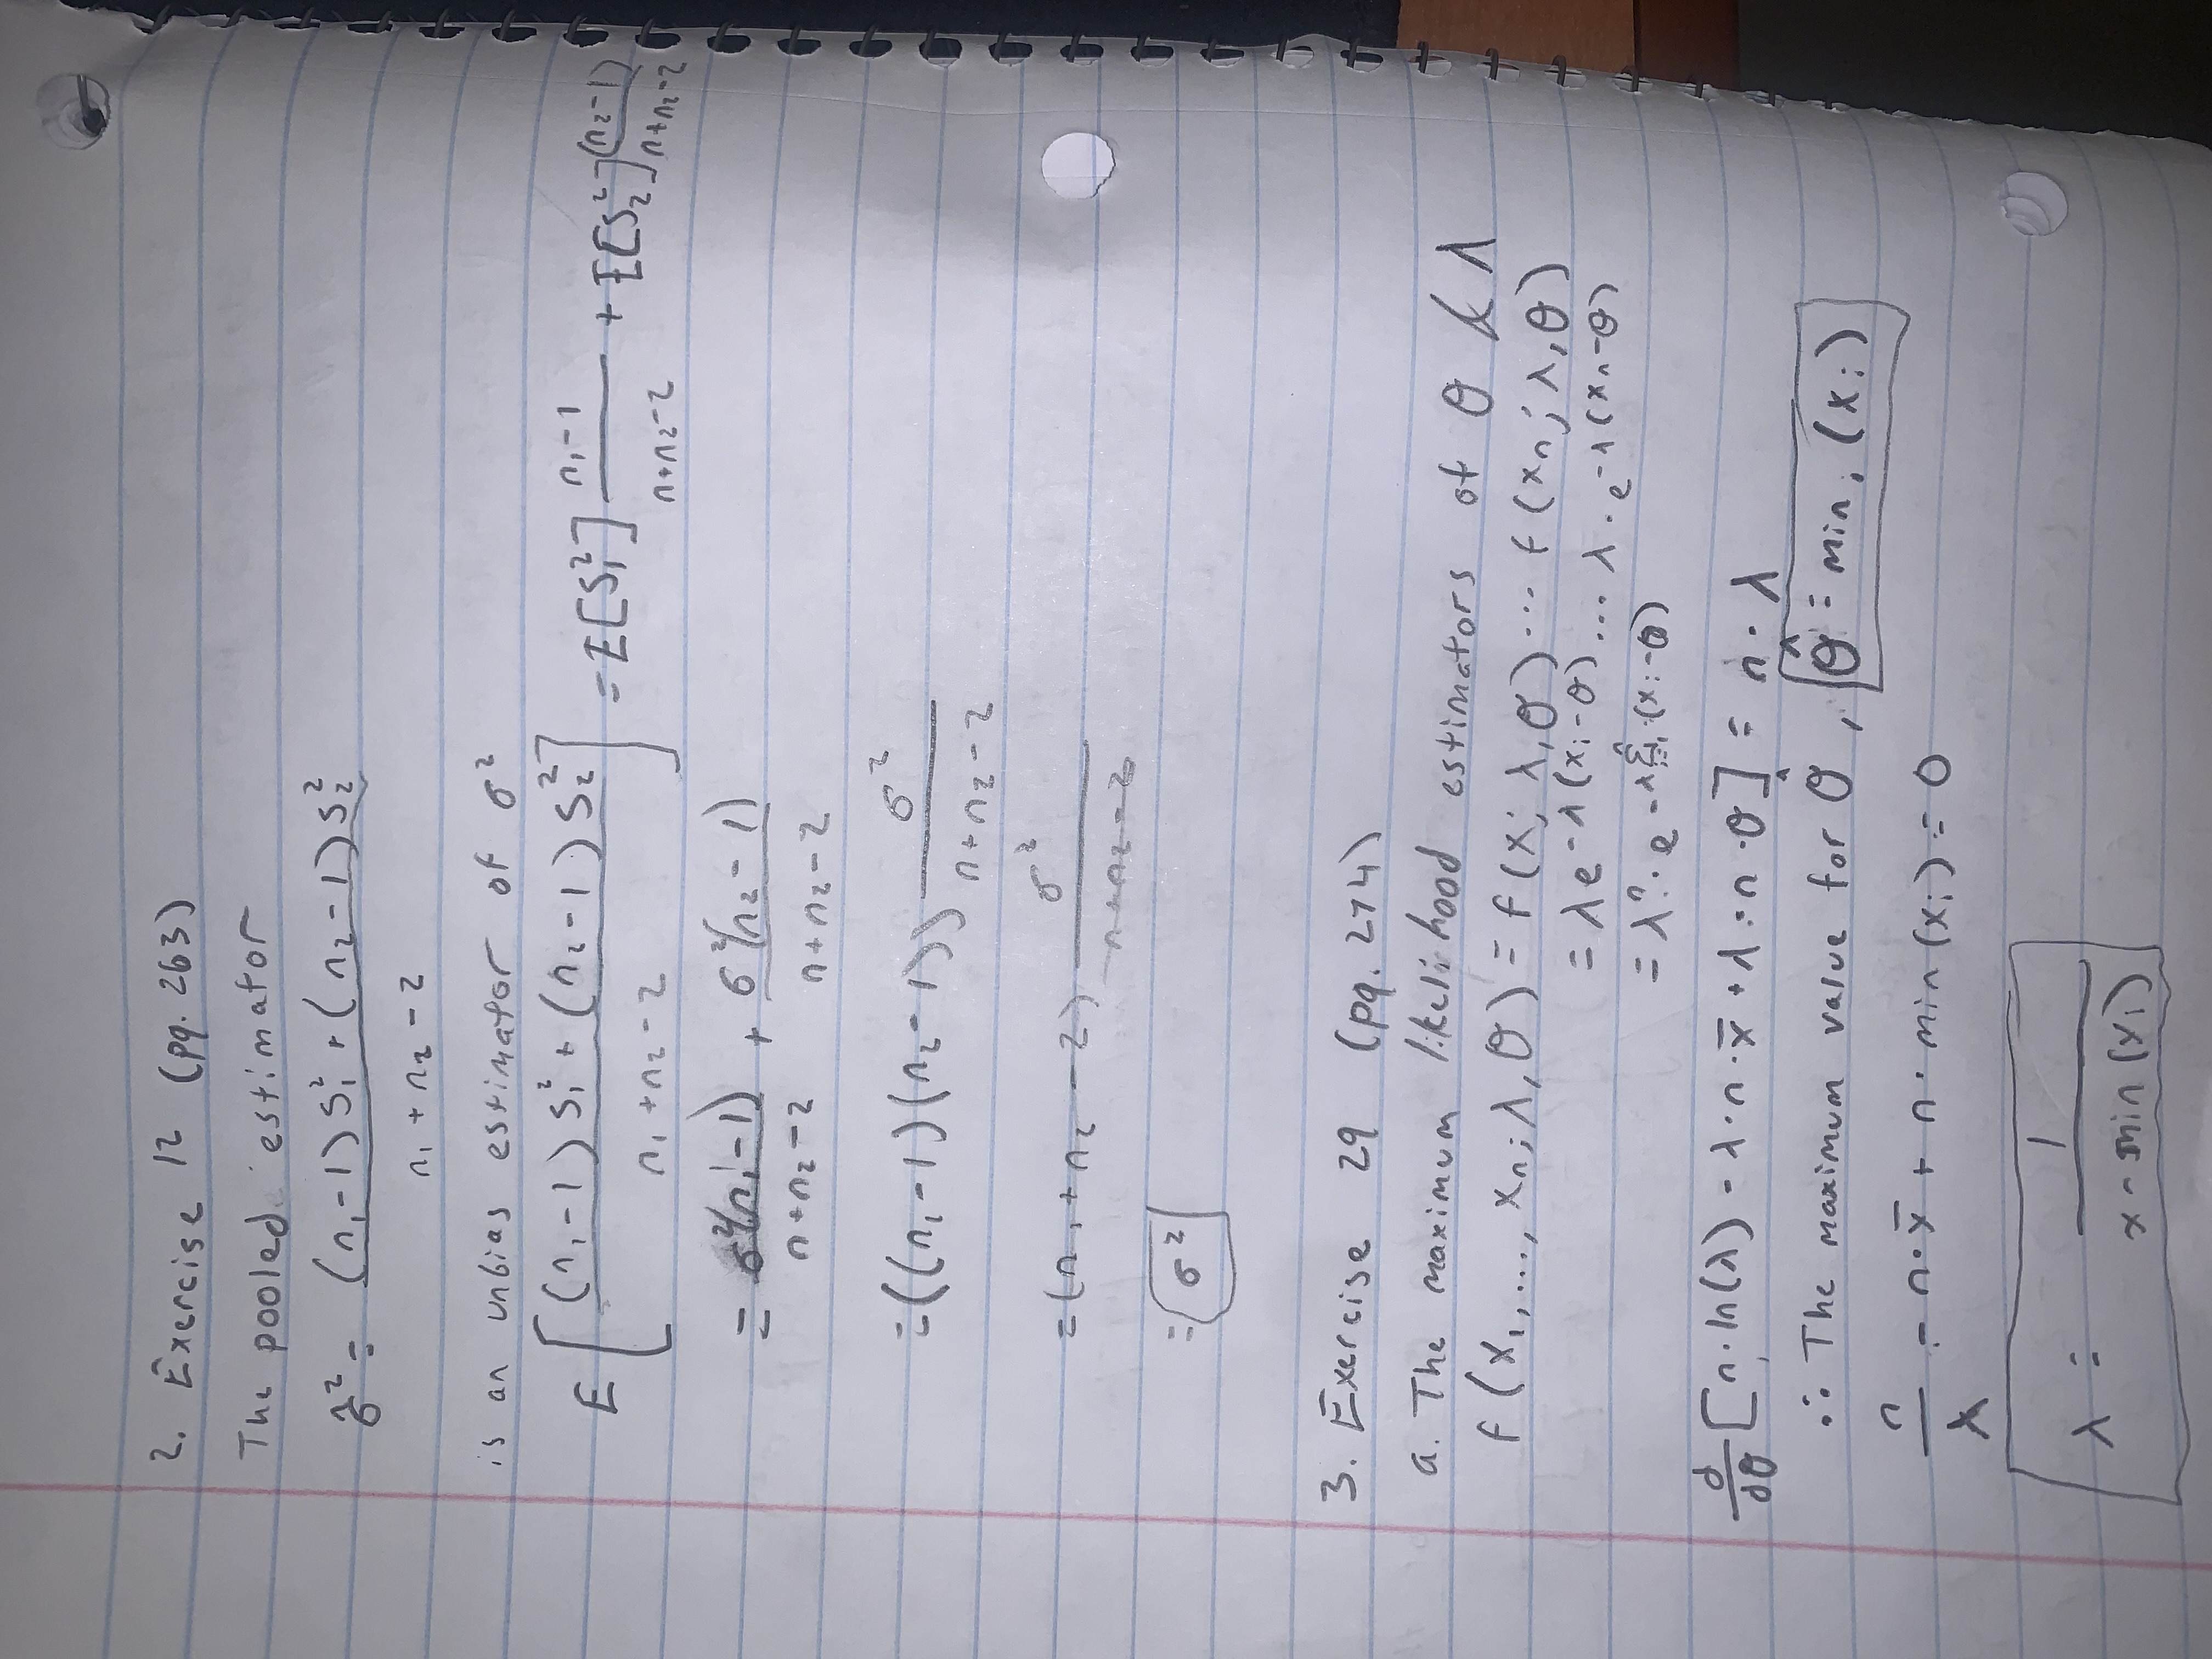 2. Exercise 12 (pg. 263)
The pooled estimator
σ̂² = ((n₁-1)S₁² + (n₂-1)S₂²) / (n₁ + n₂ - 2)
is an unbias estimator of σ²
E[((n₁-1)S₁² + (n₂-1)S₂²) / (n₁ + n₂ - 2)] = E[S₁²] (n₁-1)/(n+n₂-2) + E[S₂²] (n₂-1)/(n+n₂-2)
= σ²(n₁-1)/(n+n₂-2) + σ²(n₂-1)/(n+n₂-2)
= ((n₁-1)(n₂-1)) σ²/(n+n₂-2)
= (n₁+n₂-2) σ²/(n+n₂-2)
= σ²
3. Exercise 29 (pg. 274)
a. The maximum likelihood estimators of θ & λ
f(x₁,...,xₙ;λ,θ) = f(x;λ,θ)...f(xₙ;λ,θ)
= λe^(-λ(xᵢ-θ)) ... λ·e^(-λ(xₙ-θ))
= λⁿ·e^(-λ Σⁿᵢ₌₁(xᵢ-θ))
d/dθ [n·ln(λ) - λ·n·x̄ + λ·n·θ] = n·λ
∴ The maximum value for θ̂, θ̂ = minᵢ(xᵢ)
n/λ - n·x̄ + n·min(xᵢ) = 0
λ = 1/(x-min(xᵢ))